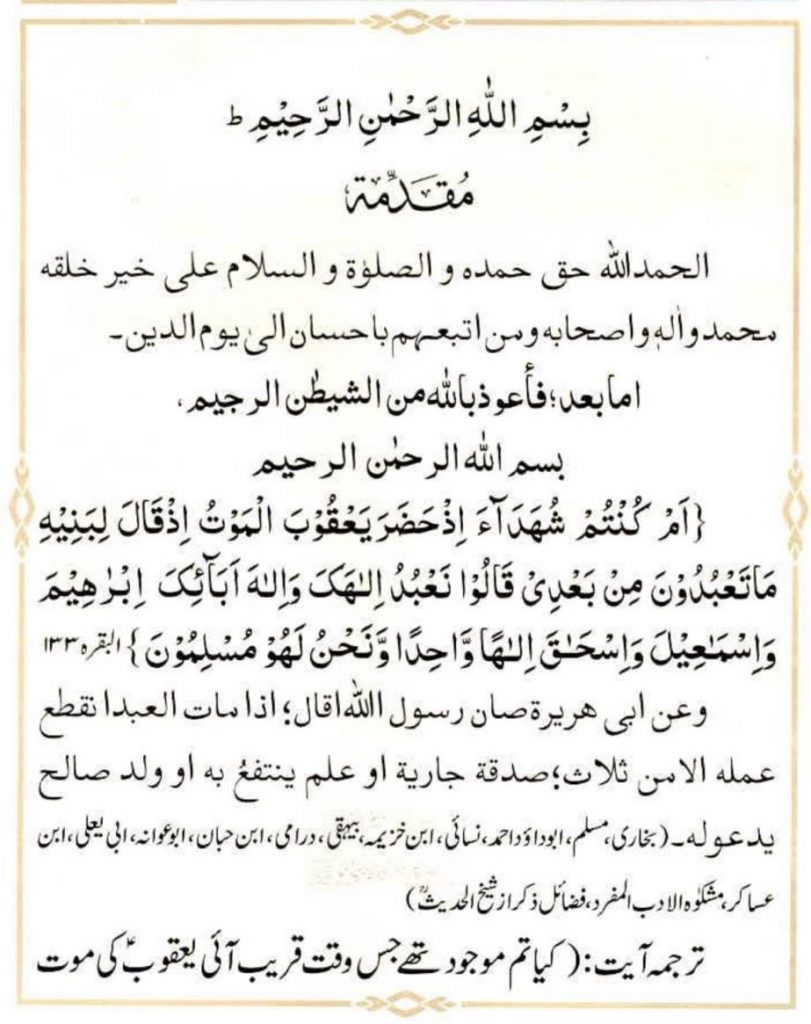 بِسْمِ اللّٰهِ الرَّحْمٰنِ الرَّحِيْمِ ط
مُقَدِّمَة
الحمدالله حق حمده و الصلوٰة و السلام على خير خلقه
محمد واٰلهٖ و اصحابه ومن اتبعهم باحسان الىٰ يوم الدين۔
اما بعد؛ فأعوذ بالله من الشيطٰن الرجيم،
بسم الله الرحمٰن الرحيم
{اَمْ كُنْتُمْ شُهَدَآءَ اِذْ حَضَرَ يَعْقُوْبَ الْمَوْتُ اِذْ قَالَ لِبَنِيْهِ
مَا تَعْبُدُوْنَ مِنْ بَعْدِىْ قَالُوْا نَعْبُدُ اِلٰـهَکَ وَاِلٰهَ اَبَآئِکَ اِبْرٰهِيْمَ
وَاِسْمٰعِيْلَ وَاِسْحٰقَ اِلٰـهًا وَّاحِدًا وَّنَحْنُ لَهُوْ مُسْلِمُوْنَ} البقرہ ۱۳۳
وعن ابى هريرة صان رسول االله اقال؛ اذا مات العبدا نقطع
عمله الا من ثلاث؛ صدقة جارية او علم ينتفعُ به او ولد صالح
يدعوله۔ (بخاری، مسلم، ابوداؤد احمد، نسائی، ابن خزیمہ، بیہقی، درامی، ابن حبان، ابوعوانہ، ابی یعلی، ابن
عساکر، مشکوٰہ الادب المفرد، فضائل ذکر از شیخ الحدیثؒ)
ترجمہ آیت: (کیا تم موجود تھے جس وقت قریب آئی یعقوبؑ کی موت